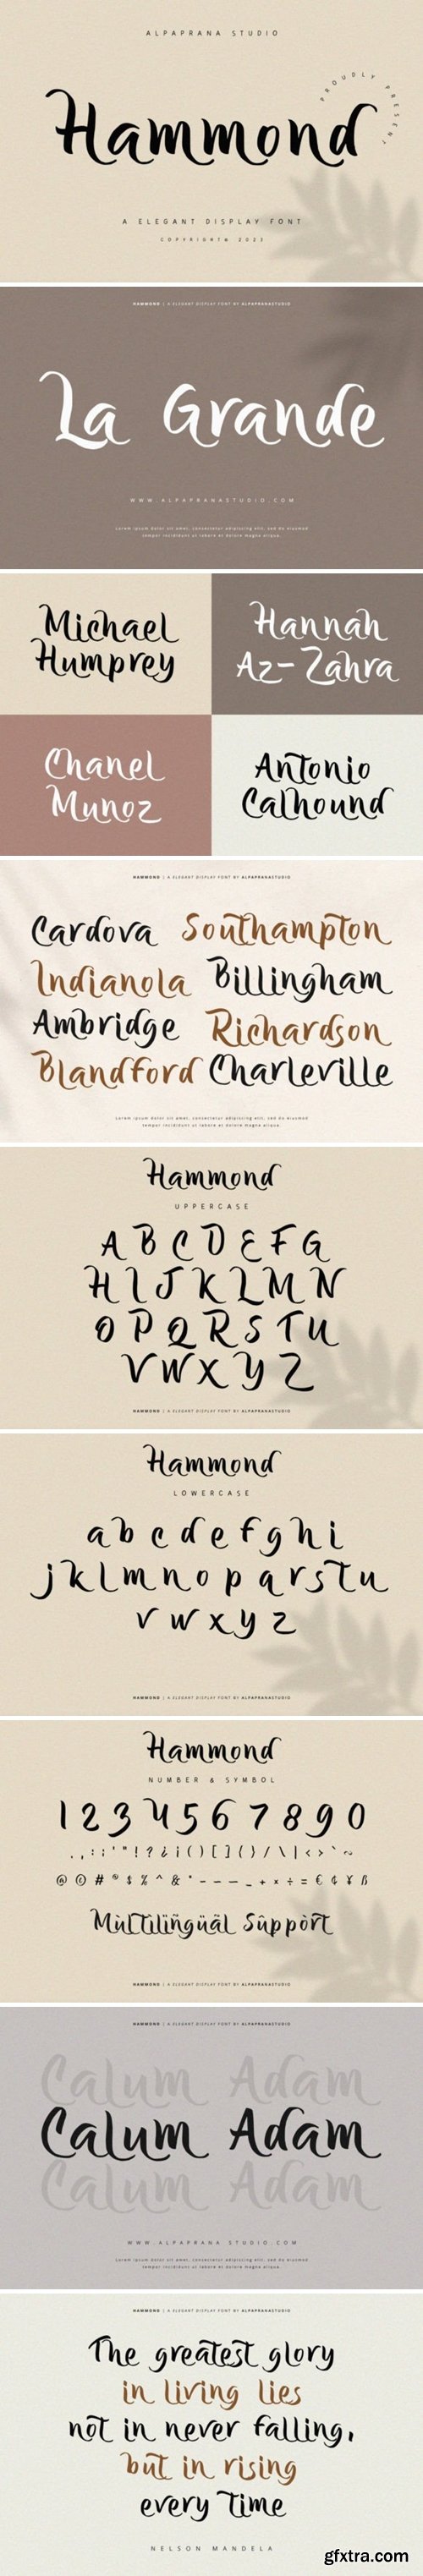 ALPAPRANA STUDIO
PROUDLY PRESENT
Hammond
A ELEGANT DISPLAY FONT
COPYRIGHT© 2023
HAMMOND | A ELEGANT DISPLAY FONT BY ALPAPRANASTUDIO
La Grande
WWW.ALPAPRANASTUDIO.COM
Lorem ipsum dolor sit amet, consectetur adipiscing elit, sed do eiusmod
tempor incididunt ut labore et dolore magna aliqua.
Michael
Humprey
Hannah
Az-Zahra
Chanel
Munoz
Antonio
Calhound
HAMMOND | A ELEGANT DISPLAY FONT BY ALPAPRANASTUDIO
Cardova Southampton
Indianola Billingham
Ambridge Richardson
Blandford Charleville
Lorem ipsum dolor sit amet, consectetur adipiscing elit, sed do eiusmod
tempor incididunt ut labore et dolore magna aliqua.
Hammond
UPPERCASE
A B C D E F G
H I J K L M N
O P Q R S T U
V W X Y Z
HAMMOND | A ELEGANT DISPLAY FONT BY ALPAPRANASTUDIO
Hammond
LOWERCASE
a b c d e f g h i
j k l m n o p q r s t u
v w x y z
HAMMOND | A ELEGANT DISPLAY FONT BY ALPAPRANASTUDIO
Hammond
NUMBER & SYMBOL
1 2 3 4 5 6 7 8 9 0
. , : ; ' " ! ? ¿ ¡ ( ) [ ] { } / \ | < > ` ~
@ © # ® $ % ^ & * - – — _ + × ÷ = € ¢ ¥ ß
Mùltîlïngüäl Sûppòrt
HAMMOND | A ELEGANT DISPLAY FONT BY ALPAPRANASTUDIO
HAMMOND | A ELEGANT DISPLAY FONT BY ALPAPRANASTUDIO
Calum Adam
Calum Adam
Calum Adam
WWW.ALPAPRANA STUDIO.COM
Lorem ipsum dolor sit amet, consectetur adipiscing elit, sed do eiusmod
tempor incididunt ut labore et dolore magna aliqua.
HAMMOND | A ELEGANT DISPLAY FONT BY ALPAPRANASTUDIO
The greatest glory
in living lies
not in never falling,
but in rising
every time
NELSON MANDELA
gfxtra.com